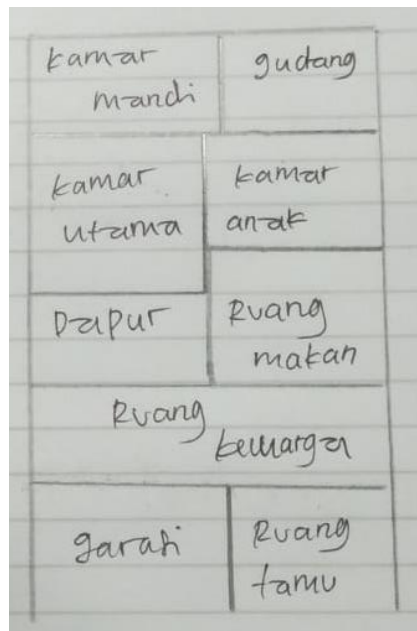 kamar
mandi
gudang
kamar
utama
kamar
anak
Dapur
Ruang
makan
Ruang
keluarga
garasi
Ruang
tamu